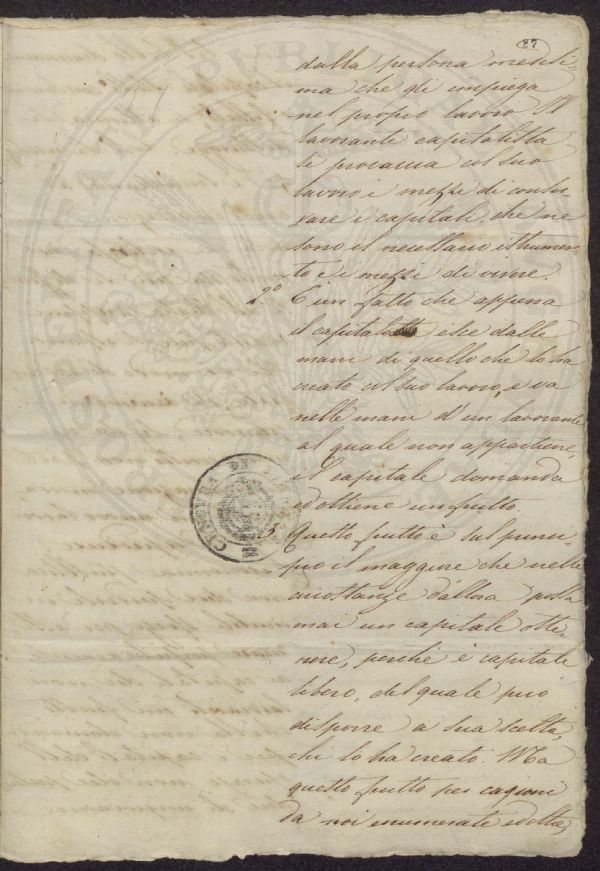 27
dalla persona medesi-
ma che gli impiega
nel proprio lavoro. Il
lavorante capitalista
si procaccia col suo
lavoro i mezzi di conser-
vare i capitali, che ne
sono il necessario istrumen-
to e i mezzi di vivere.
2.° È un fatto che appena
il capitale esce dalle
mani di quello che lo ha
creato col suo lavoro, e va
nelle mani d'un lavorante
al quale non appartiene,
il capitale domanda
ed ottiene un frutto.
3. Questo frutto è sul princi-
pio il maggiore che nelle
circostanze d'allora possa
mai un capitale otte-
nere, perchè è capitale
libero, del quale può
disporre a sua scelta,
chi lo ha creato. Ma
questo frutto per cagioni
da noi enumerate
CENSURA DEI